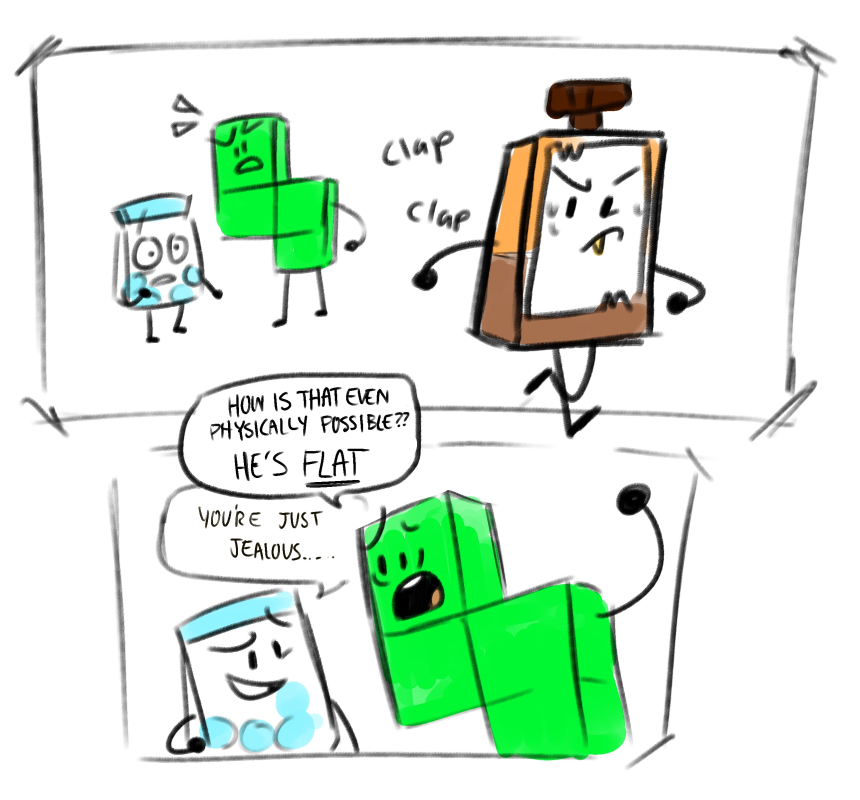 clap
clap
HOW IS THAT EVEN
PHYSICALLY POSSIBLE??
HE'S FLAT
YOU'RE JUST
JEALOUS.....